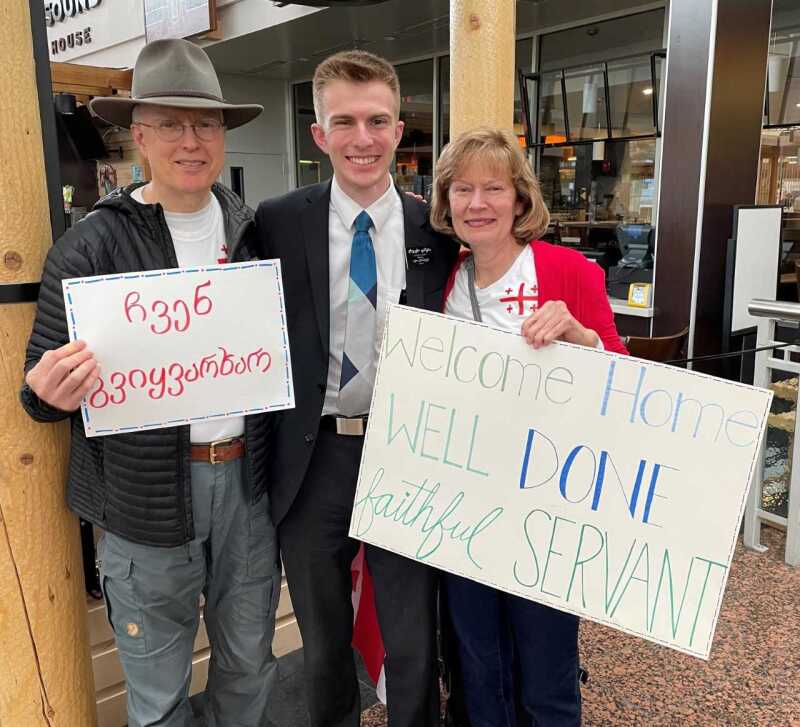 SOUND
HOUSE
ჩვენ
გვიყვარხარ
Welcome Home
WELL DONE
faithful SERVANT